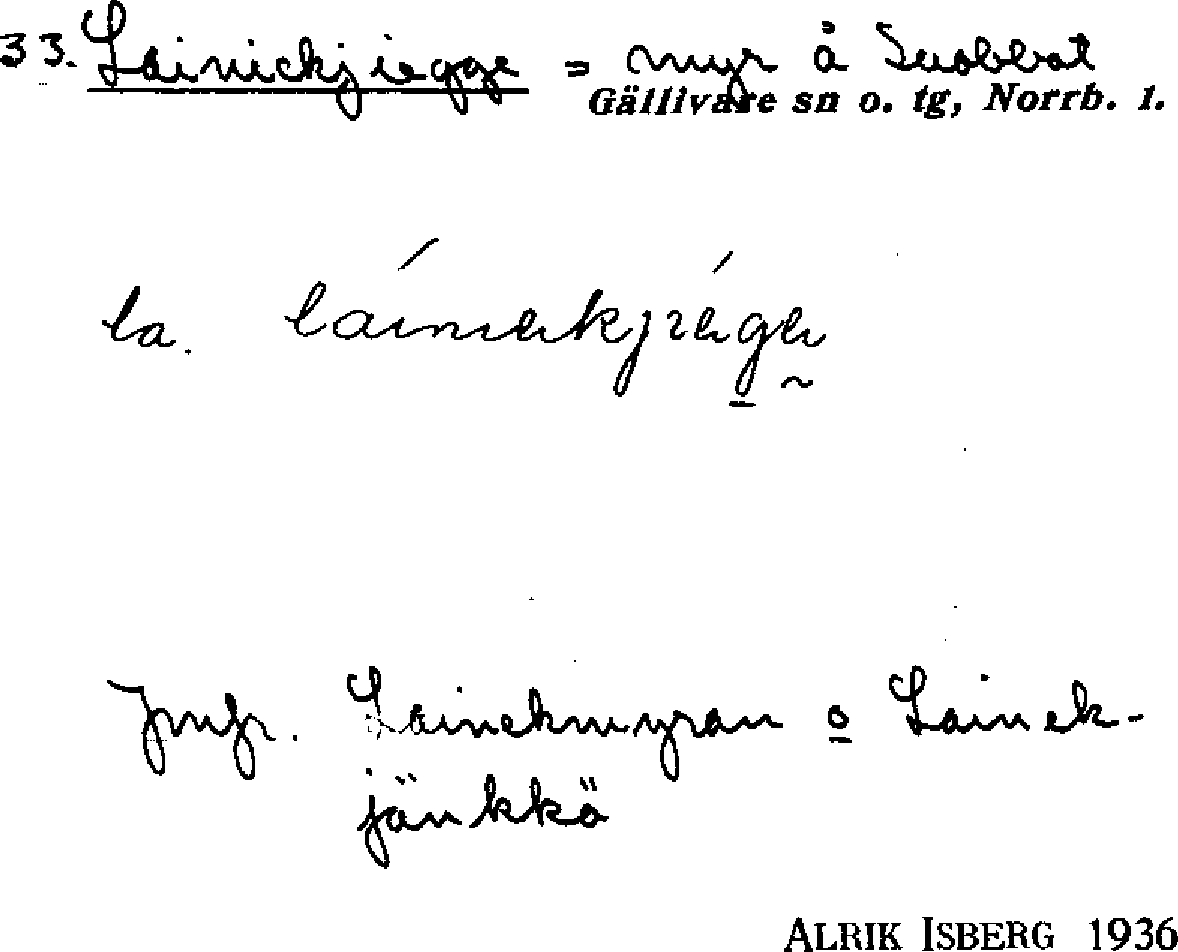 33. Lainickjiegge = myr å Suobbat
Gällivare sn o. tg, Norrb. l.
la.
Jmfr. Lainekmyran o Lainek-
jänkkö
ALRIK ISBERG 1936